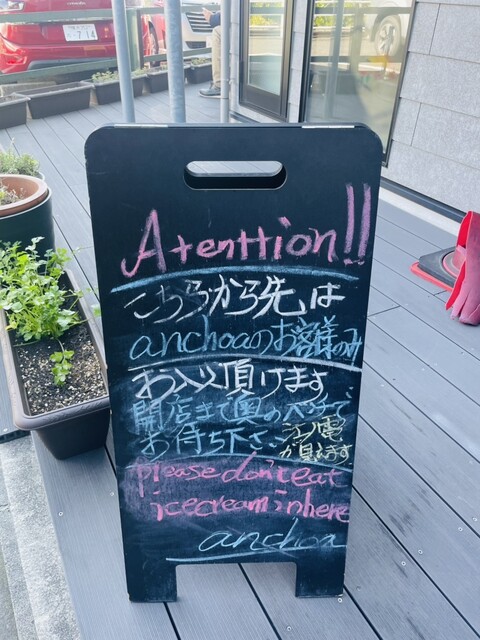 ・714
Atenttion!!
こちらから先は
anchoaのお客様のみ
お入り頂けます
開店まで奥のベンチで
お待ち下さい
江ノ電
が見えます
please don't eat
icecream in here
anchoa